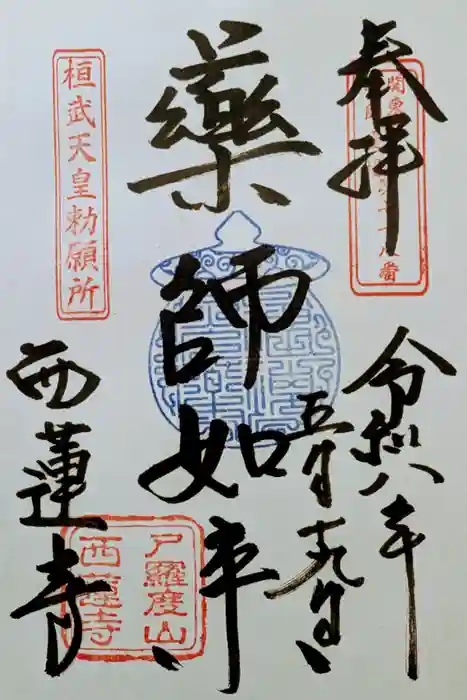 奉拝
令和八年
五月十九日
藥師如来
桓武天皇勅願所
西蓮寺
尸羅度山
西蓮寺